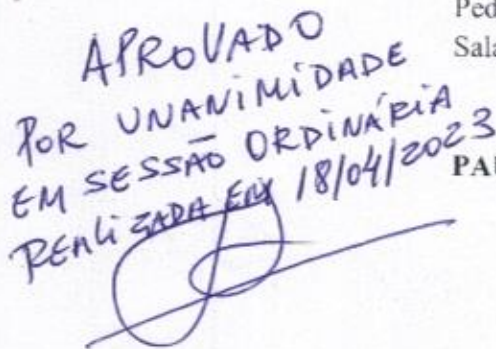 Ped
Sala
APROVADO
POR UNANIMIDADE
EM SESSÃO ORDINÁRIA
REALIZADA EM 18/04/2023
PAU